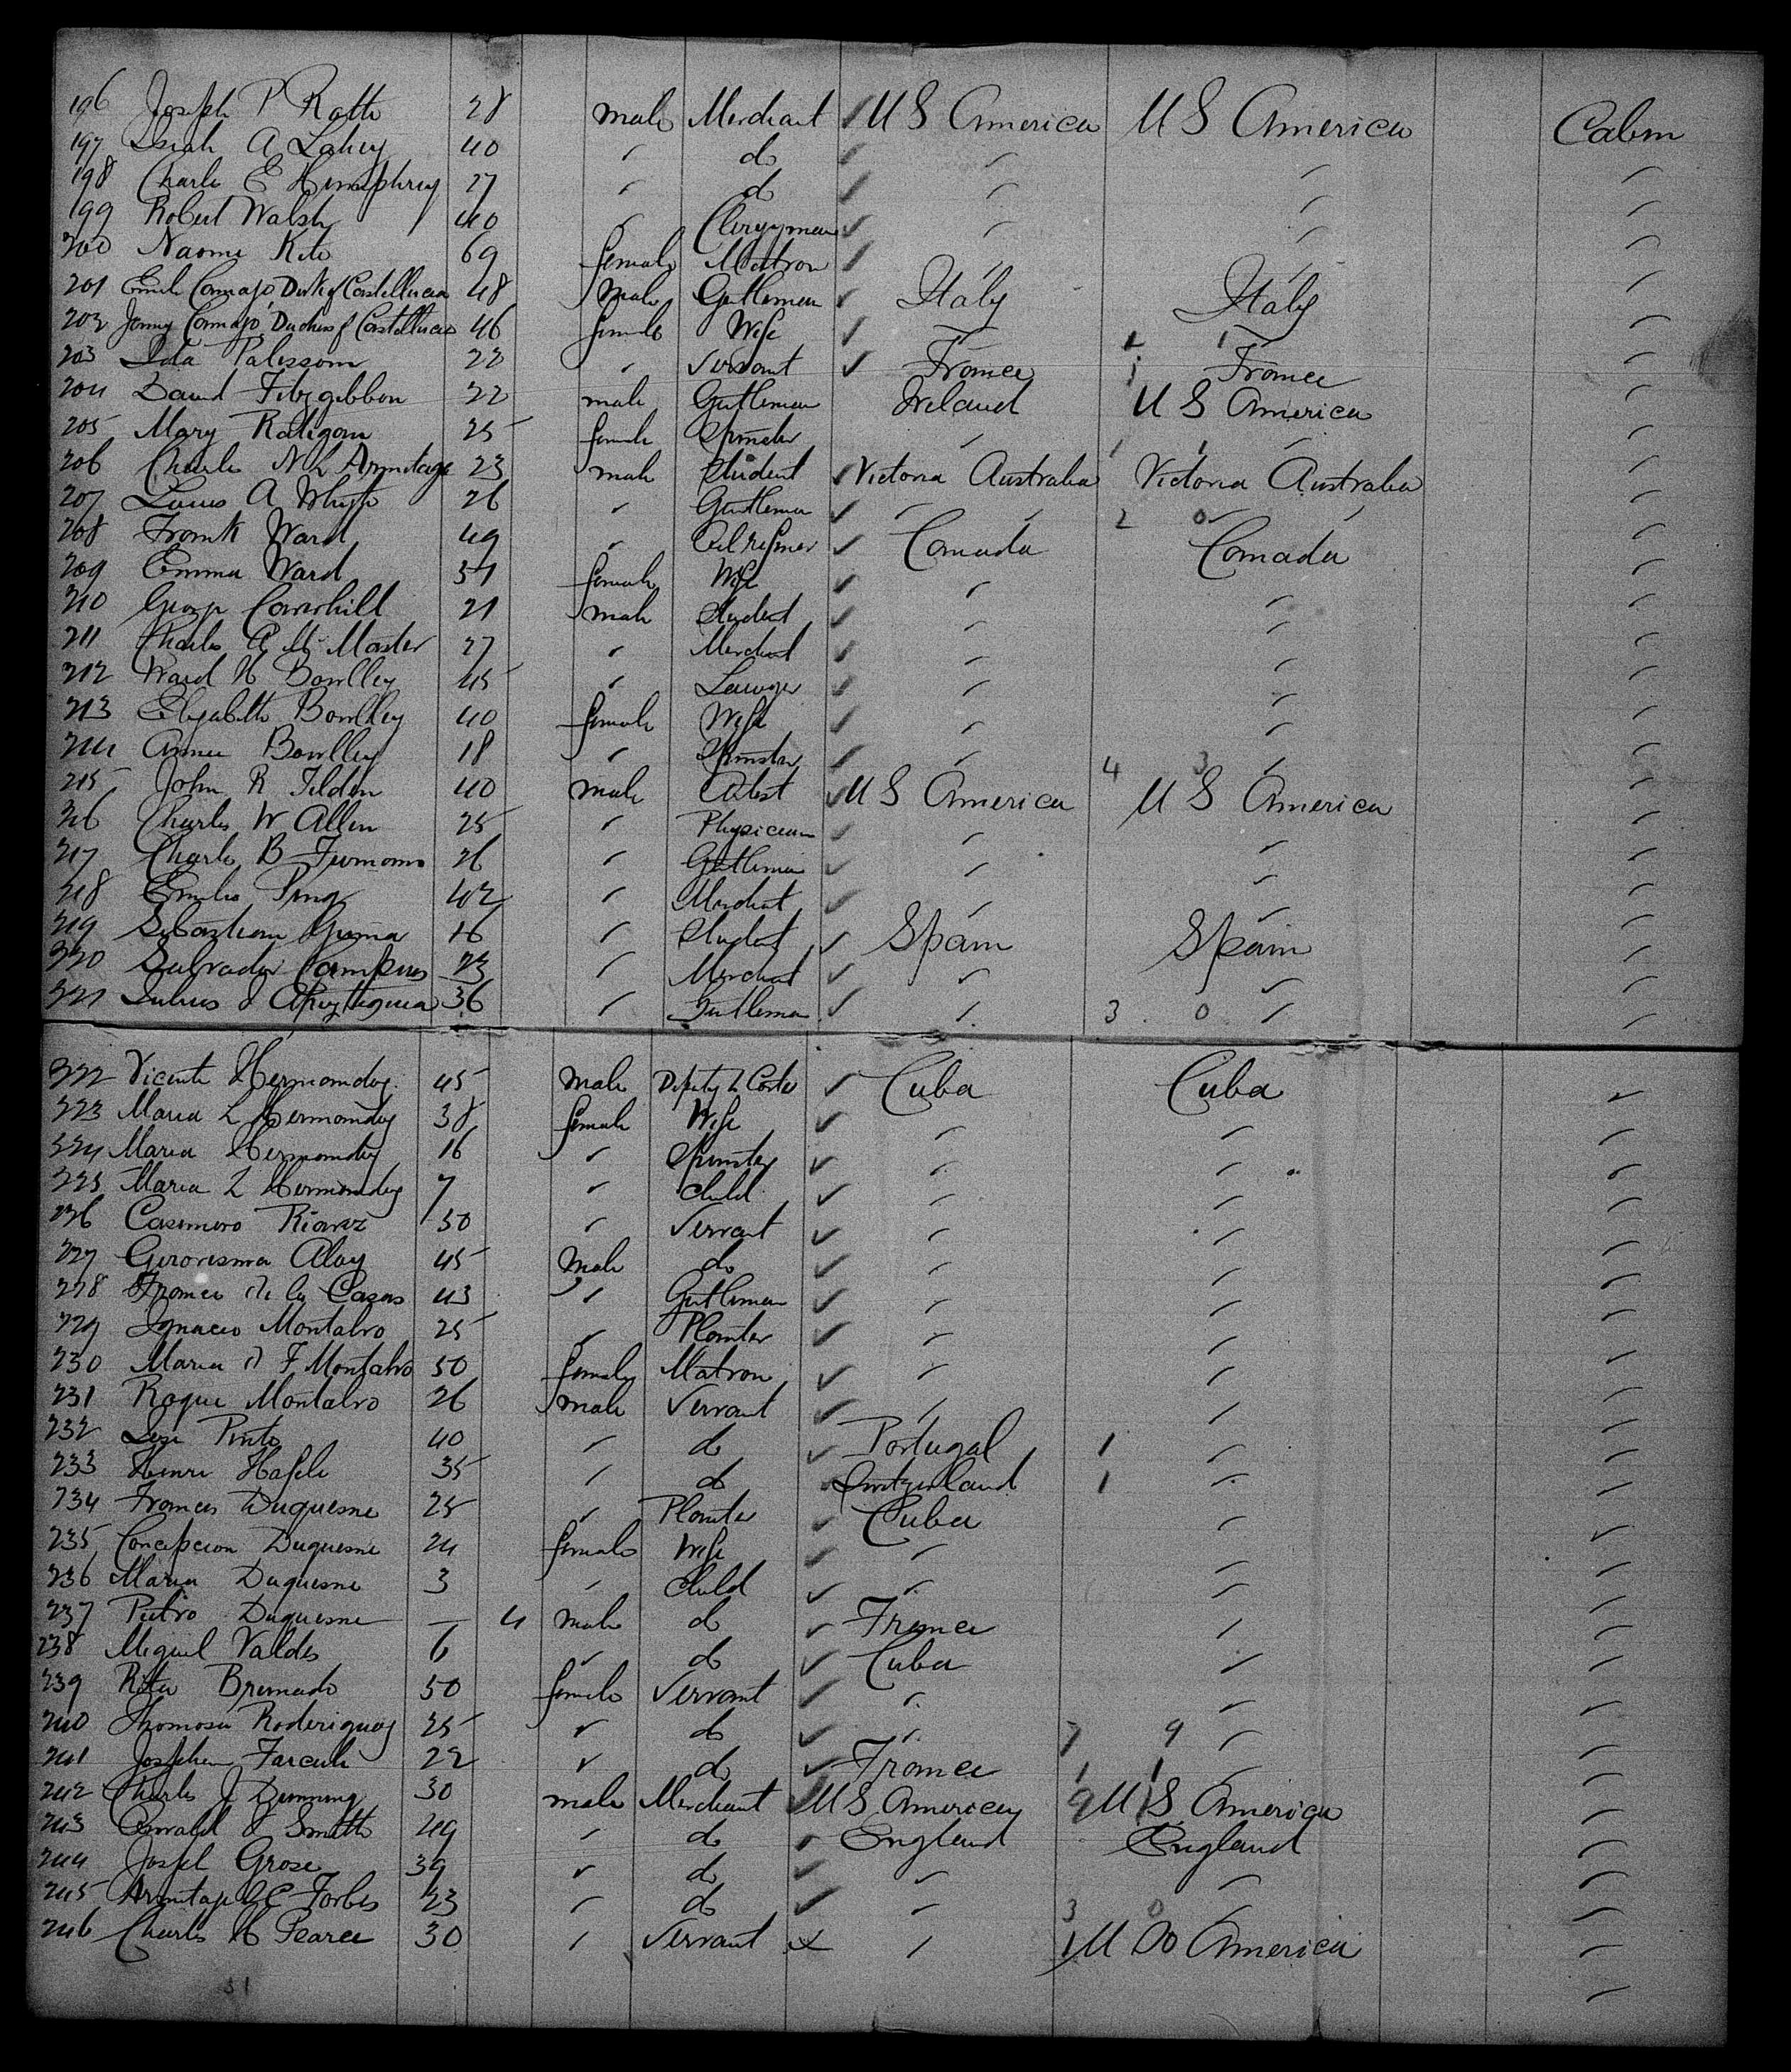 196 Joseph P Rotto 28 male Merchant ✓ U S America U S America Cabin
197 Isiah A Lahey 40 " do ✓ " " "
198 Charles E Humphrey 27 " do ✓ " " "
199 Robert Walsh 40 " Clergyman ✓ " " "
200 Naomi Kito 69 female Matron ✓ " " "
201 Emile Comajo, Duke of Castelluccia 48 male Gentleman ✓ Italy Italy "
202 Jenny Comajo, Duchess of Castelluccia 46 female Wife ✓ " 1 1 "
203 Ida Palissom 22 " Servant ✓ France 1 France "
204 David Fitzgibbon 22 male Gentleman Ireland U S America "
205 Mary Ratigan 25 female Spinster " 1 1 " "
206 Charles N L Armitage 23 male Student ✓ Victoria Australia Victoria Australia "
207 Louis A Whyte 26 " Gentleman ✓ " " 2 0 " " "
208 Frank Ward 49 " Oil refiner ✓ Canada Canada "
209 Emma Ward 37 female Wife ✓ " " "
210 George Cornhill 21 male Student ✓ " " "
211 Charles A Mc Master 27 " Merchant ✓ " " "
212 Ward H Bowlley 45 " Lawyer ✓ " " "
213 Elizabeth Bowlley 40 female Wife ✓ " " "
214 Annie Bowlley 18 " Spinster ✓ " 4 3 " "
215 John R Tilden 40 male Artist ✓ U S America U S America "
216 Charles W Allen 25 " Physician ✓ " " "
217 Charles B 26 " Gentleman ✓ " " "
218 Emilio Puig 42 " Merchant ✓ " " "
219 Sebastian Guma 16 " Student ✓ Spain Spain "
220 Salvador Campus 23 " Merchant ✓ " " "
221 Julius d 36 " Gentleman ✓ " 3 0 " "
222 Vicente Hernandez 45 male Deputy to Cortes ✓ Cuba Cuba "
223 Maria L Hernandez 38 female Wife ✓ " " "
224 Maria Hernandez 16 " Spinster ✓ " " "
225 Maria L Hernandez 7 " Child ✓ " " "
226 Casimiro 30 " Servant ✓ " " "
227 Aloy 45 male do ✓ " " "
228 de las Casas 43 " Gentleman ✓ " " "
229 Ignacio Montalvo 25 " Planter ✓ " " "
230 Maria d F Montalvo 50 female Matron ✓ " " "
231 Roque Montalvo 26 male Servant ✓ " " "
232 Pinto 40 " do ✓ Portugal 1 " "
233 Henri Hafeli 35 " do Switzerland 1 " "
234 Frances Duquesne 25 " Planter ✓ Cuba " "
235 Concepcion Duquesne 24 female Wife ✓ " " "
236 Maria Duquesne 3 " Child ✓ " " "
237 Pietro Duquesne — 4 male do ✓ France " "
238 Miguel Valdes 6 " do ✓ Cuba " "
239 Rita 50 female Servant ✓ " " "
240 Thomosa Roderiguez 25 " do ✓ " 7 9 " "
241 Josephen 22 " do ✓ France 1 1 " "
242 Charles J Dunning 30 male Merchant ✓ U S America 9 U S America "
243 Oswald d Smith 49 " do ✓ England England "
244 Josph Grose 39 " do ✓ " " "
245 Armitage Forbes 23 " do ✓ " 3 0 " "
246 Charles H Pearce 30 " Servant x " 1 U S America "
51